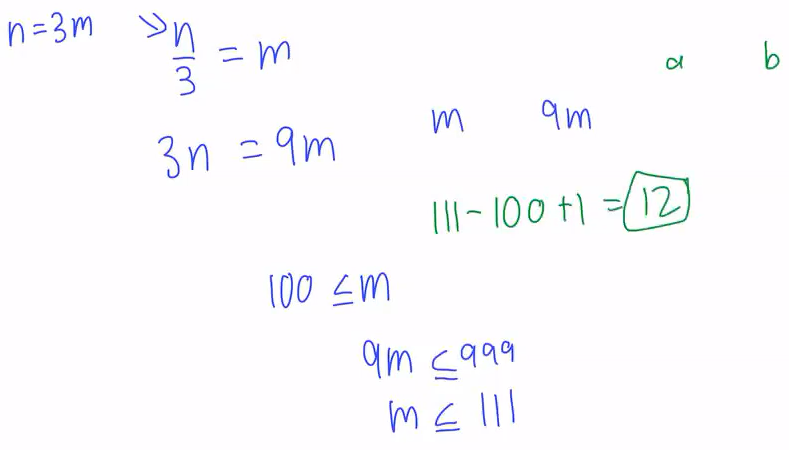 n=3m
n/3 = m
a b
3n = 9m
m 9m
111-100+1 = 12
100 ≤ m
9m ≤ 999
m ≤ 111